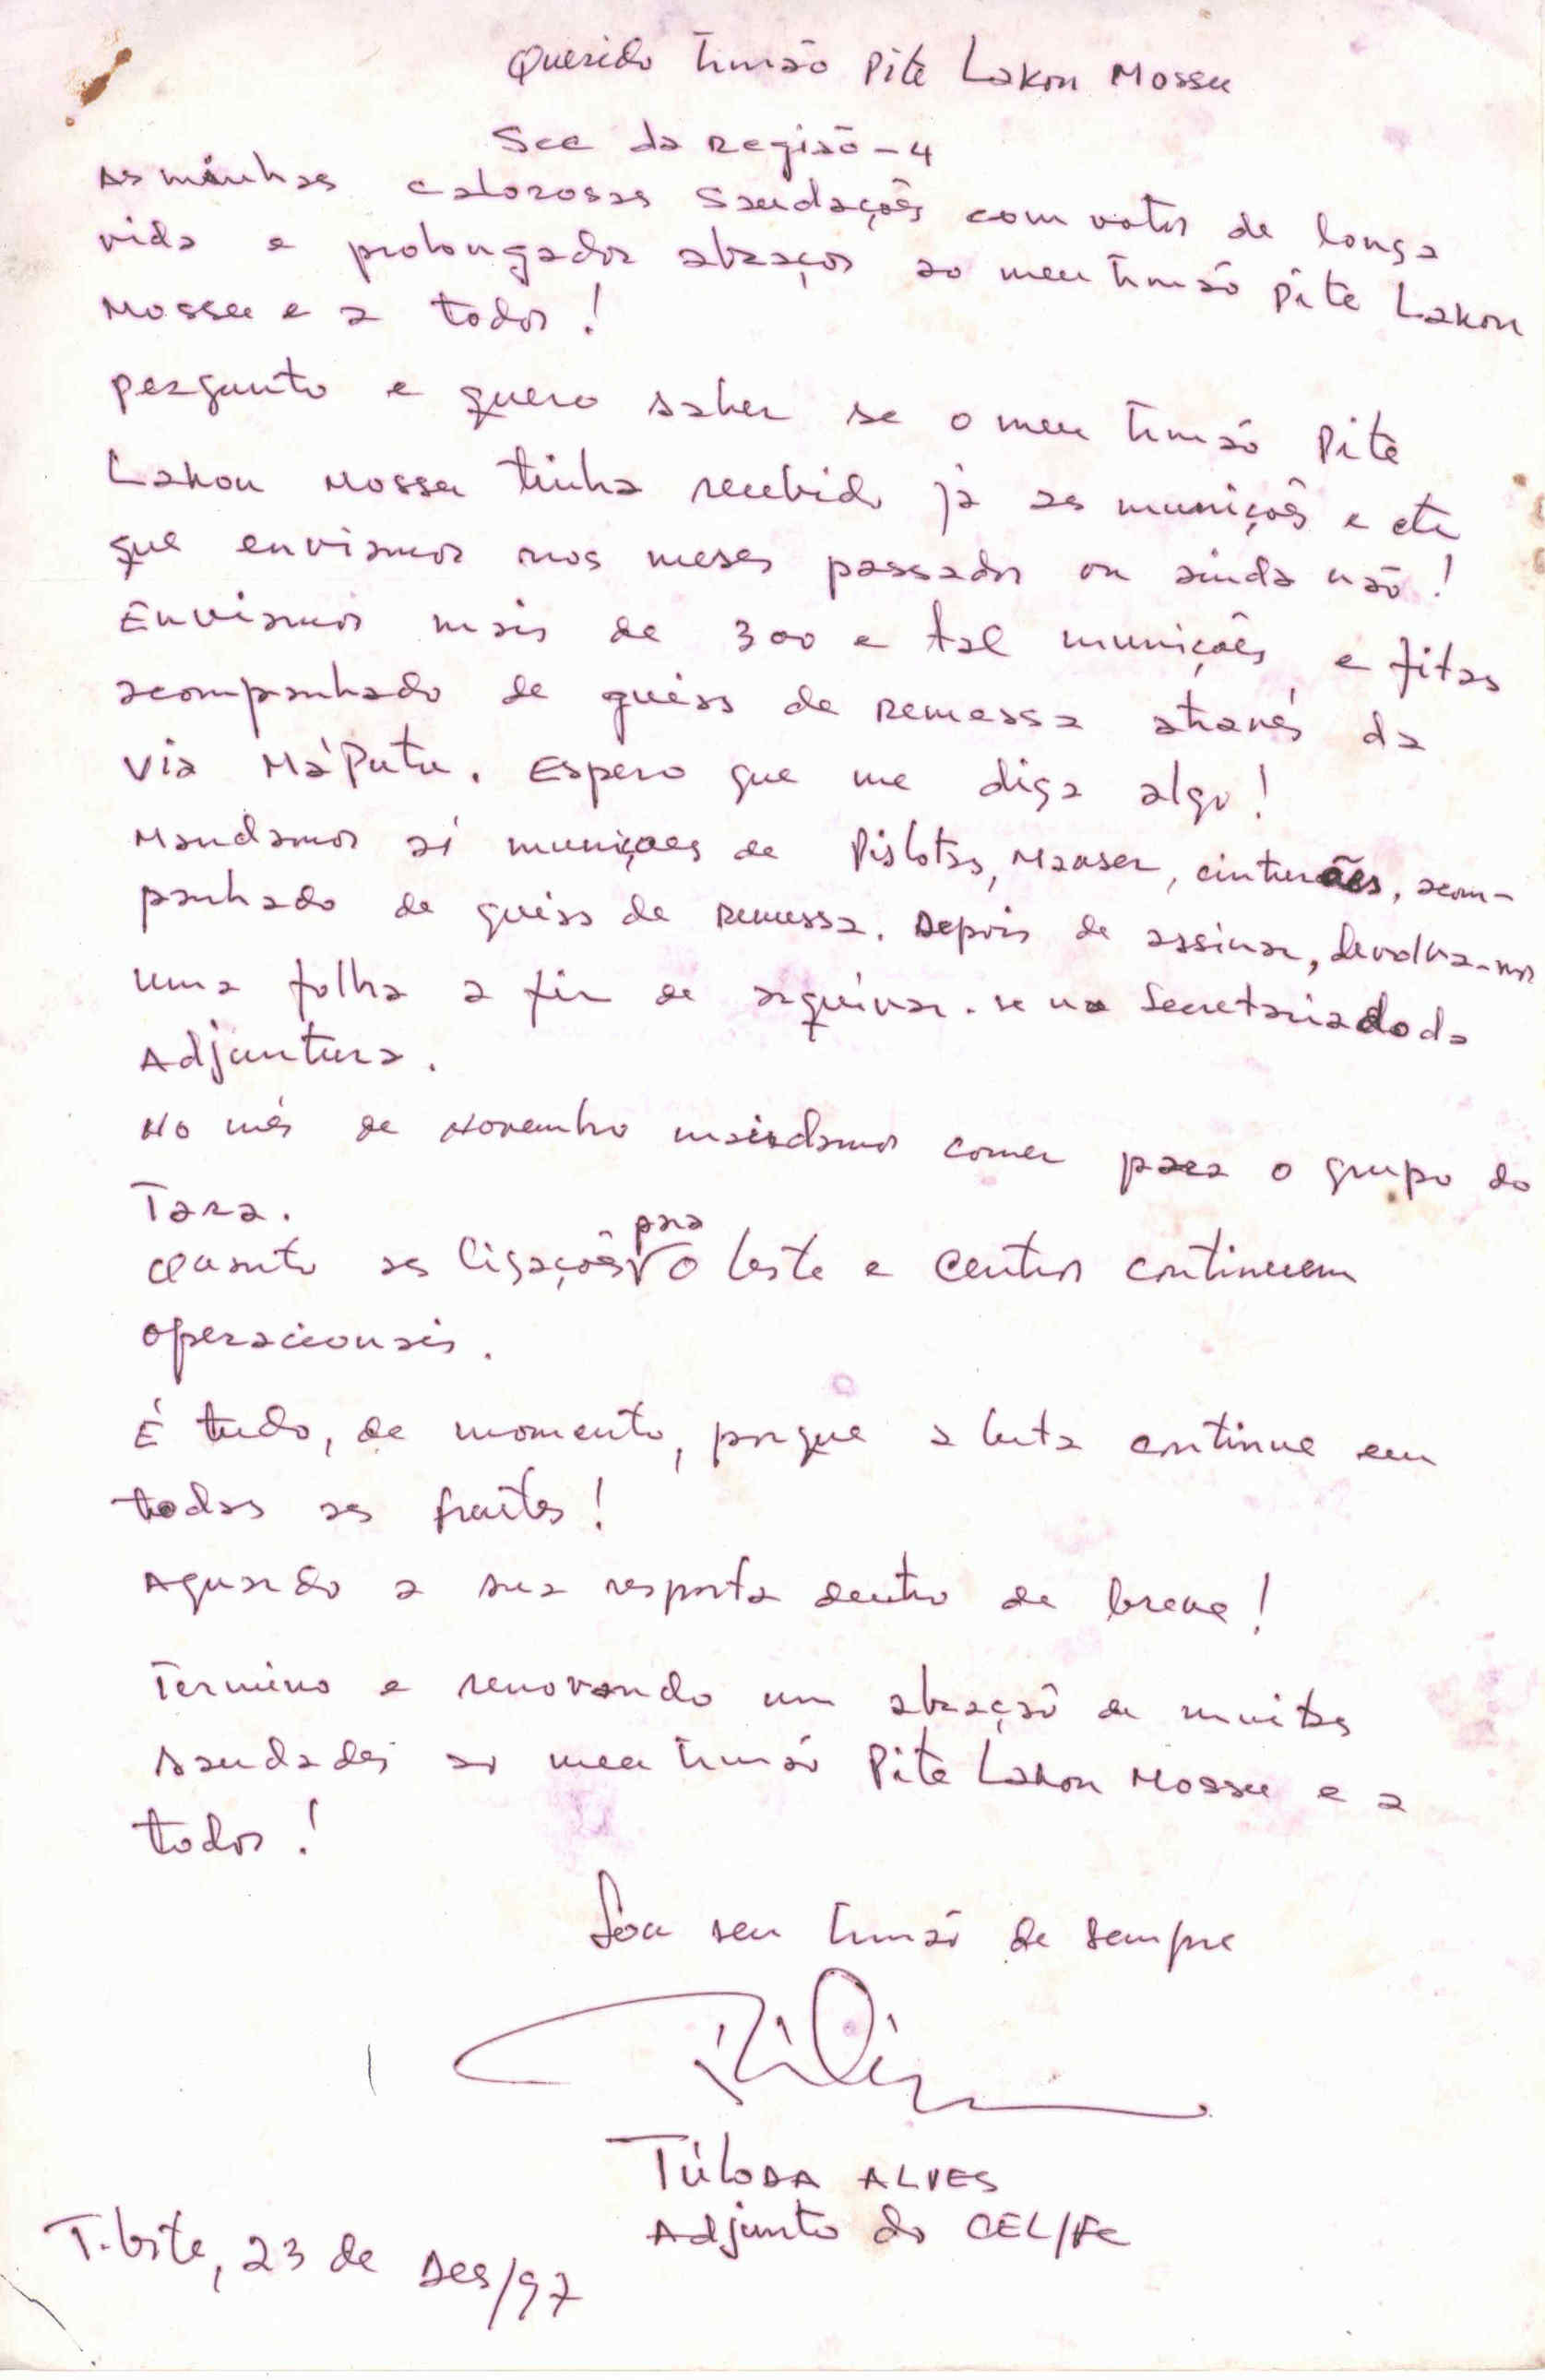 Querido Irmão Pite Lakon Mossu
Sec da Região-4
As minhas calorosas Saudações com votos de longa
vida e prolongados abraços ao meu Irmão Pite Lakon
Mossu e a todos!
Pergunto e quero saber se o meu Irmão Pite
Lakon Mossu tinha recebido já as munições e etc
que enviamos nos meses passados ou ainda não!
Enviamos mais de 300 e tal munições e fitas
acompanhado de guias de remessa através da
via Má'Putu. Espero que me diga algo!
Mandamos aí munições de Pistolas, Mauser, cinturões, acom-
panhado de guias de remessa. Depois de assinar, devolva-nos
uma folha a fim de arquivar-se no Secretariado da
Adjuntura.
No mês de Novembro mandamos comer para o grupo do
Tara.
Quanto as ligações para o leste e Centro continuem
operacionais.
É tudo, de momento, porque a luta continue em
todas as frentes!
Aguardo a sua resposta dentro de breve!
Termino e renovando um abração de muitas
saudades ao meu Irmão Pite Lakon Mossu e a
todos!
Sou seu Irmão de sempre
Túloda ALVES
Adjunto do CEL/FC
T. leste, 23 de Des/97